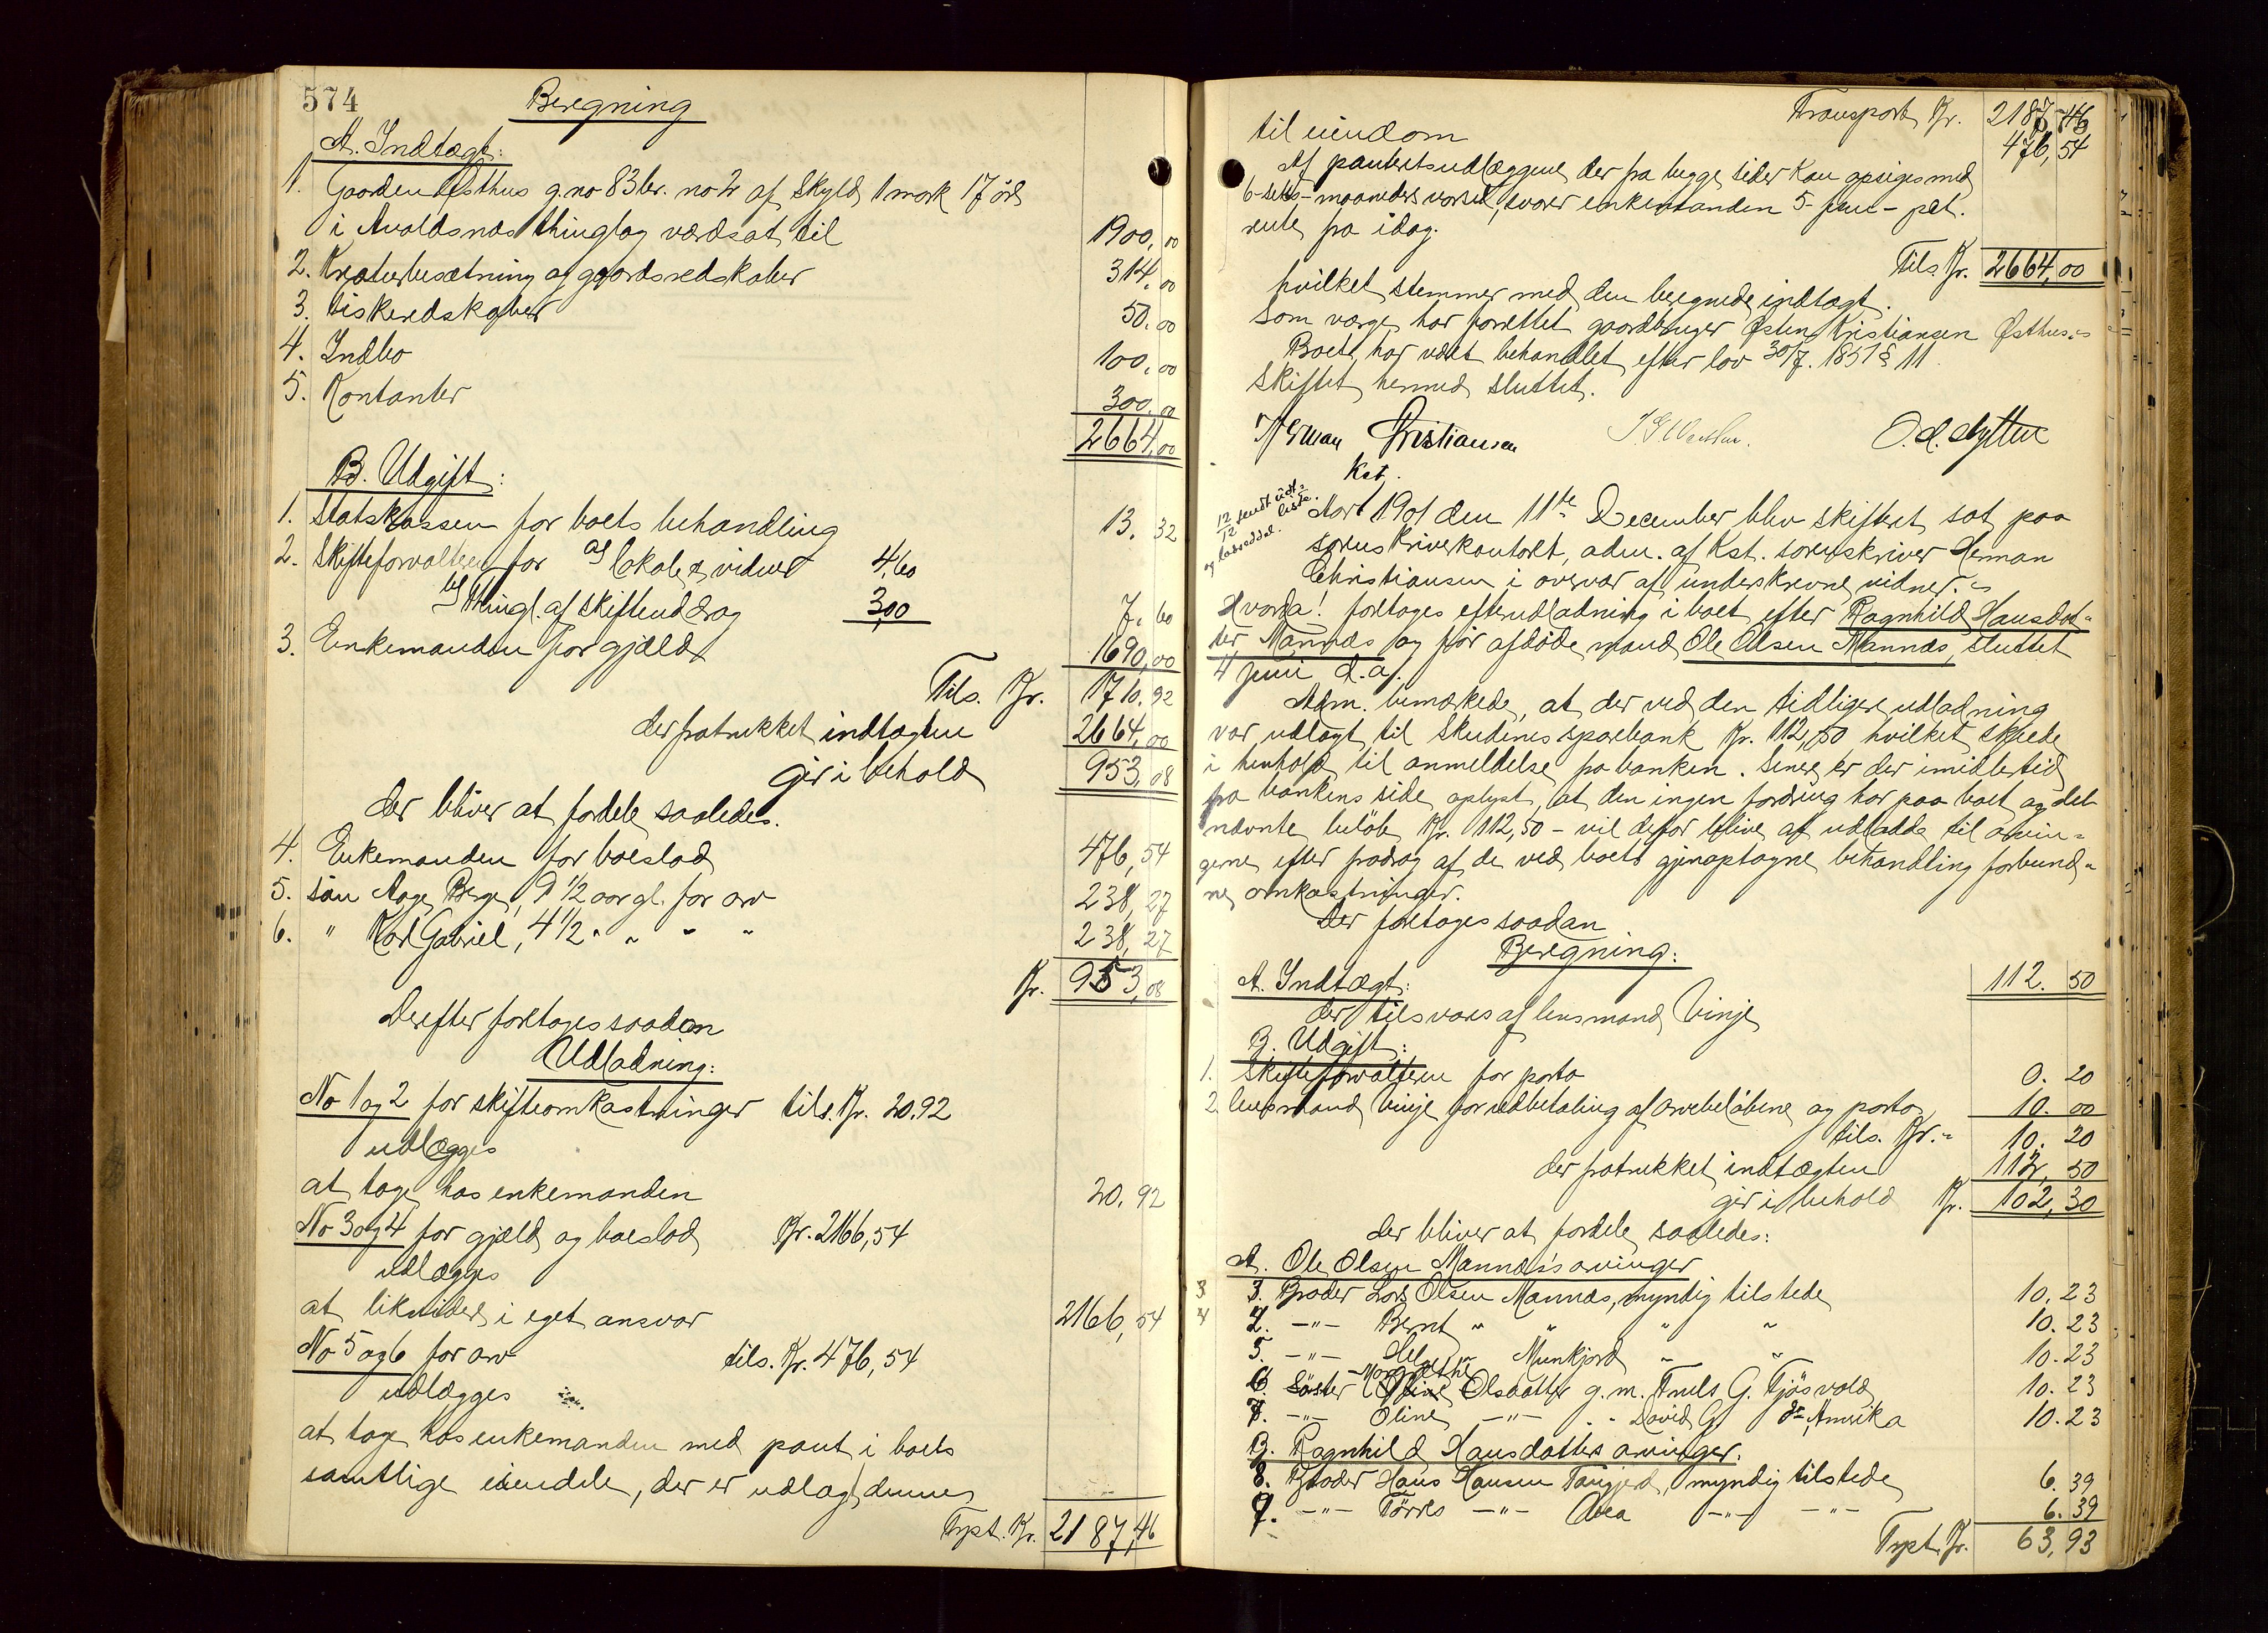 574
Beregning
A. Indtægt:
1. Gaarden Østhus g.no 83 br. no 2 af skyld 1 mark 17 öre
i Avaldsnæs thinglag værdsat til 1900,00
2. Kreaturbesætning og gaardsredskaber 314,00
3. Fiskeredskaber 50,00
4. Indbo 100,00
5. Kontanter 300,00
2664,00
B. Udgift:
1. Statskassen for boets behandling 13.32
2. Skifteforvalteren for a) lokale & vidner 4,60
b) thingl. af skifteuddrag 3,00 7.60
3. Enkemanden for gjæld 1690,00
Tils. Kr. 1710.92
der fratrukket indtægten 2664,00
gir i behold 953,08
der bliver at fordele saaledes.
4. Enkemanden for boeslod 476,54
5. Sön Aage Berge, 9 1/2 aar gl. for arv 238,27
6. " Karl Gabriel, 4 1/2 " " " " 238,27
Kr. 953,08
Derefter foretages saadan
Udlodning:
No 1 og 2 for skifteomkastninger tils. Kr. 20.92
udlægges
at tage hos enkemanden 20.92
No 3 og 4 for gjæld og boeslod Kr. 2166,54
udlægges
at likvidere i eget ansvar 2166,54
No 5 og 6 for arv tils. Kr. 476,54
udlægges
at tage hos enkemanden med pant i boets
samtlige eiendele, der er udlagt denne
Trpt. Kr. 2187,46
Transport Kr. 2187,46
til eiendom 476,54
Af panteretsudlæggene, der fra begge sider kan opsiges med
6-seks-maaneders varsel, svarer enkemanden 5-fem-pct.
rente fra idag.
Tils. Kr. 2664,00
hvilket stemmer med den beregnede indtægt.
Som værge har forrettet gaardbruger Østen Kristiansen Østhus.
Boet har været behandlet efter lov 30/7. 1851 § 11
Skiftet hermed sluttet.
Herman Christiansen O. A. Nytten
Kst.
12/12 sendt udl. liste og lodseddel.
Aar 1901 den 11te December blev skifteret sat paa
sorenskriverkontoret, adm. af Kst. sorenskriver Herman
Christiansen i overvær af underskrevne vidner.
Hvorda! foretoges efterudlodning i boet efter Ragnhild Hansdat-
ter Mannæs og før afdöde mand Ole Olsen Mannæs, sluttet
4 juni d.a.
Adm. bemærkede, at der ved den tidligere udlodning
var udlagt til Skudenes sparebank Kr. 112,50 hvilket skjede
i henhold til anmeldelse fra banken. Senere er der imidlertid
fra bankens side oplyst, at den ingen fordring har paa boet og det
nævnte belöb Kr. 112,50 - vil derfor blive at udlodde til arvin-
gerne efter fradrag af de ved boets gjenoptagne behandling forbund-
ne omkastninger.
Der foretages saadan
Beregning:
A. Indtægt: 112.50
der tilsvares af lensmand Vinje
B. Udgift:
1. Skifteforvalteren for porto 0.20
2. lensmand Vinje for udbetaling af arvebelöbene og porto 10.00
tils. Kr. 10.20
der fratrukket indtægten 112,50
gir i behold Kr. 102,30
der bliver at fordele saaledes:
A. Ole Olsen Mannæs's arvinger
3. Broder Lars Olsen Mannæs, myndig tilstede 10.23
4. -"- Bernt " " " " 10.23
5. -"- Helge " Munkjord " " 10.23
6. Söster Margrethe Olsdatter g.m. Truls G. Fjösvold 10.23
7. -"- Oline -"- " " David G. i Amerika 10.23
B. Ragnhild Hansdatters arvinger.
8. Broder Hans Hansen Tangjerd, myndig tilstede 6.39
9. -"- Törres -"- -"- -"- 6.39
Trpt. Kr. 63,93